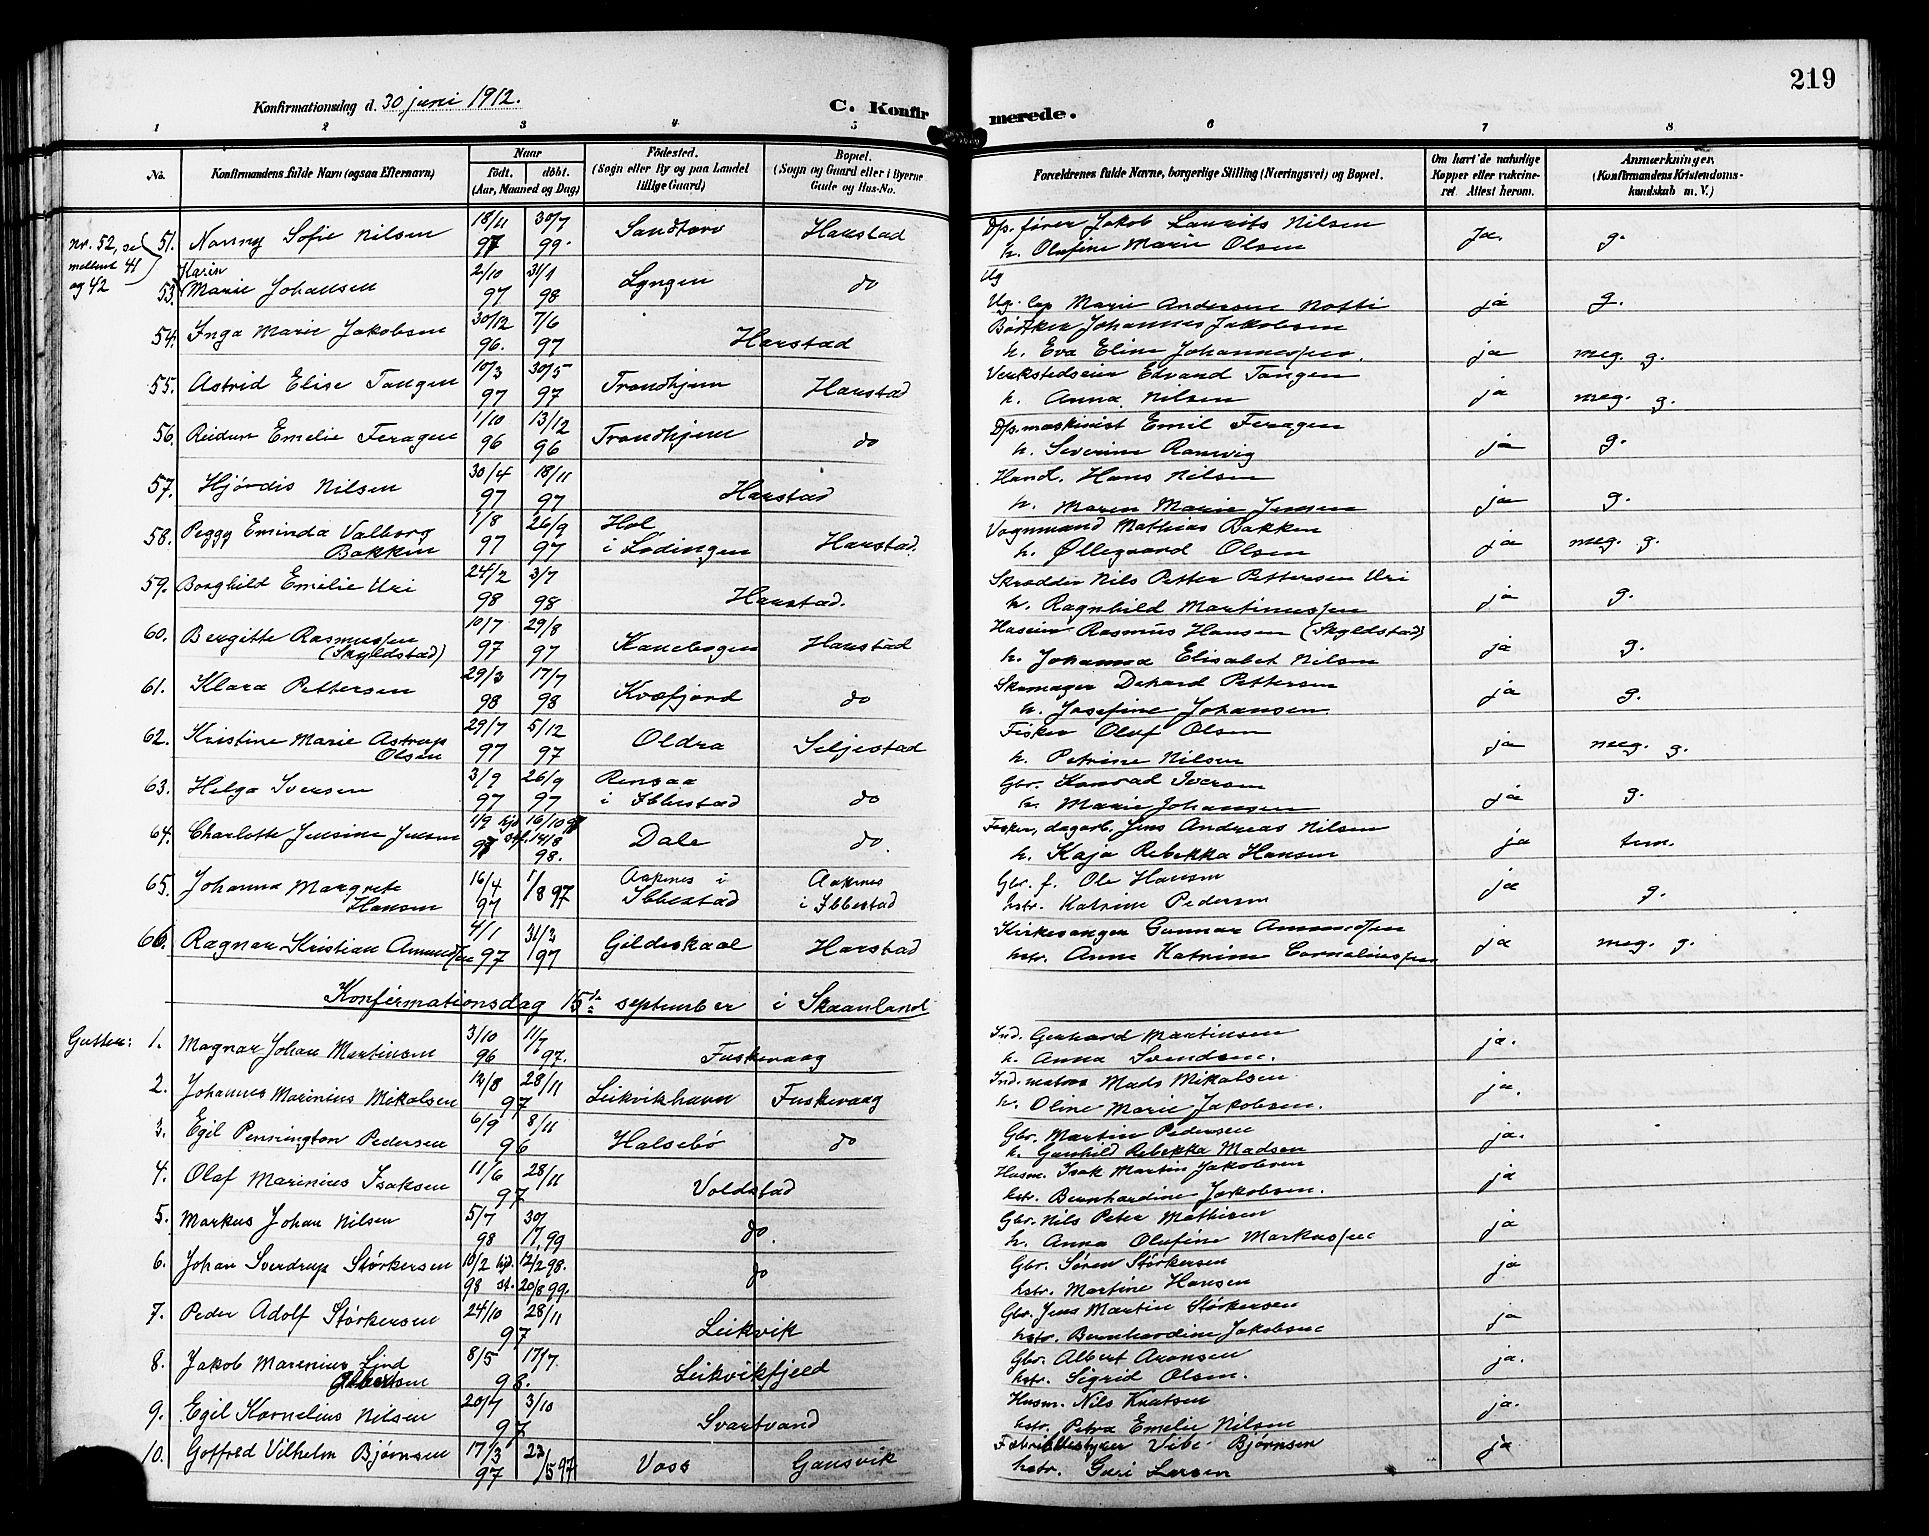 219
Konfirmationsdag d. 30 juni 1912.
C. Konfirmerede.
1 2 3 4 5 6 7 8
No.
Konfirmandens fulde Navn (ogsaa Efternavn)
Naar
født. døbt.
(Aar, Maaned og Dag)
Fødested.
(Sogn eller By og paa Landet
tillige Gaard)
Bopæl.
(Sogn og Gaard eller i Byerne
Gade og Hus-No.
Forældrenes fulde Navne, borgerlige Stilling (Næringsvei) og Bopæl.
Om havt de naturlige
Kopper eller vakcine-
ret Attest herom.
Anmærkninger.
(Konfirmandens Kristendoms-
kundskab m. V.)
nr. 52, se
mellem 41
og 42
51. Nanny Sofie Nilsen 18/11 97 30/7 99. Sandtorv Harstad Dps. fører Jakob Laurits Nilsen Ja. g.
h. Olufine Marie Olsen
Karin
53. Marie Johansen 2/10 97 31/1 98 Lyngen do Ug. Lap Marie Andersen Notti ja g.
54. Inga Marie Jakobsen 30/12 96. 7/6 97 Harstad Bødker Johannes Jakobsen
h. Eva Eline Johannessen. ja meg. g.
55. Astrid Elise Tangen 10/3 97 30/5 97 Trondhjem Harstad Verkstedseier Edvard Tangen
h. Anna Nilsen ja meg. g.
56. Reidun Emelie Feragen 1/10 96 13/12 96 Trondhjem do Dps. maskinist Emil Feragen
h. Severine Ramvig ja g.
57. Hjørdis Nilsen 30/4 97 18/11 97 Harstad Hand. Hans Nilsen
h. Maren Marie Jensen ja g.
58. Peggy Eminda Valborg 1/8 97 26/9 97 Hol Harstad. Vognmand Mathias Bakken
Bakken i Lødingen h. Øllegaard Olsen ja meg. g.
59. Borghild Emelie Uri 24/2 98 3/7 98 Harstad. Skrædder Nils Petter Pettersen Uri
h. Ragnhild Martinussen ja g.
60. Bergitte Rasmussen 10/7 97 29/8 97 Kanebogen Harstad Huseier Rasmus Hansen (Skyldstad)
(Skyldstad) h. Johanna Elisabet Nilsen ja g.
61. Klara Pettersen 29/3 98 17/7 98 Kvæfjord do Skomager Dehard Pettersen
h. Josefine Johansen ja g.
62. Kristine Marie Astrup 29/7 97 5/12 97 Oldra Seljestad Fisker Oluf Olsen
Olsen h. Petrine Nilsen ja meg. g.
63. Helga Iversen 3/9 97 26/9 97 Rensaa do Gbr. Konrad Iversen
i Ibbestad h. Marie Johansen ja g.
64. Charlotte Jensine Jensen 1/9 97 hjd. 16/10 97 stf. 14/8 98. Dale do. Fisker, dagarb. Jens Andreas Nilsen
h. Kaja Rebekka Hansen ja tem.
65. Johanna Margrete 16/4 97 1/8 97 Aaknes i Aaknes Gbr. f. Ole Hansen ja g.
Hansen Ibbestad i Ibbestad hstr. Katrine Pedersen
66. Ragnar Kristian Amundsen 4/1 97 31/3 97 Gildeskaal Harstad Kirkesanger Gunnar Amundsen
hstr. Anne Katrine Corneliussen ja meg. g.
Konfirmationsdag 15de september i Skaanland
Gutter: 1. Magnar Johan Martinsen 3/10 96 11/7 97. Fuskevaag Ind. Gerhard Martinsen
h. Anna Svendsen. ja.
2. Johannes Marinius Mikalsen 12/8 28/11 97 Leikvikhavn Fuskevaag Ind. matros Mads Mikalsen
h. Oline Marie Jakobsen. ja.
3. Egil Pensington Pedersen 6/9 8/11 96 Halsebø do Gbr. Martin Pedersen
h. Gunhild Rebekka Madsen ja.
4. Olaf Marinius Isaksen 11/6 28/11 97 Voldstad Husm. Isak Martin Jakobsen
hstr. Bernhardine Jakobsen. ja
5. Markus Johan Nilsen 5/7 98 30/7, 99 do. Gbr. Nils Peter Mathisen
h. Anna Olufine Markussen ja
6. Johan Sverdrup Størkersen 10/2 98 hjd. 12/2 98. st. 20/8 99. do Gbr. Søren Størkersen
hstr. Martine Hansen ja
7. Peder Adolf Størkersen 24/10 28/11 97 Leikvik Gbr. Jens Martin Størkersen
hstr. Bernhardine Jakobsen ja
8. Jakob Marinius Lind 8/5 17/7. 98. Leikvikfjeld Gbr. Albert Aronsen
Albertsen hstr. Sigrid Olsen. ja.
9. Egil Kornelius Nilsen 20/7 3/10 97 Svartvand Husm. Nils Knutsen
hstr. Petra Emelie Nilsen ja.
10. Gotfred Vilhelm Bjørnsen 17/3 97 23/5 97 Voss Gausvik Fabrikbestyrer Vibe Bjørnsen
hstr. Guri Larsen ja